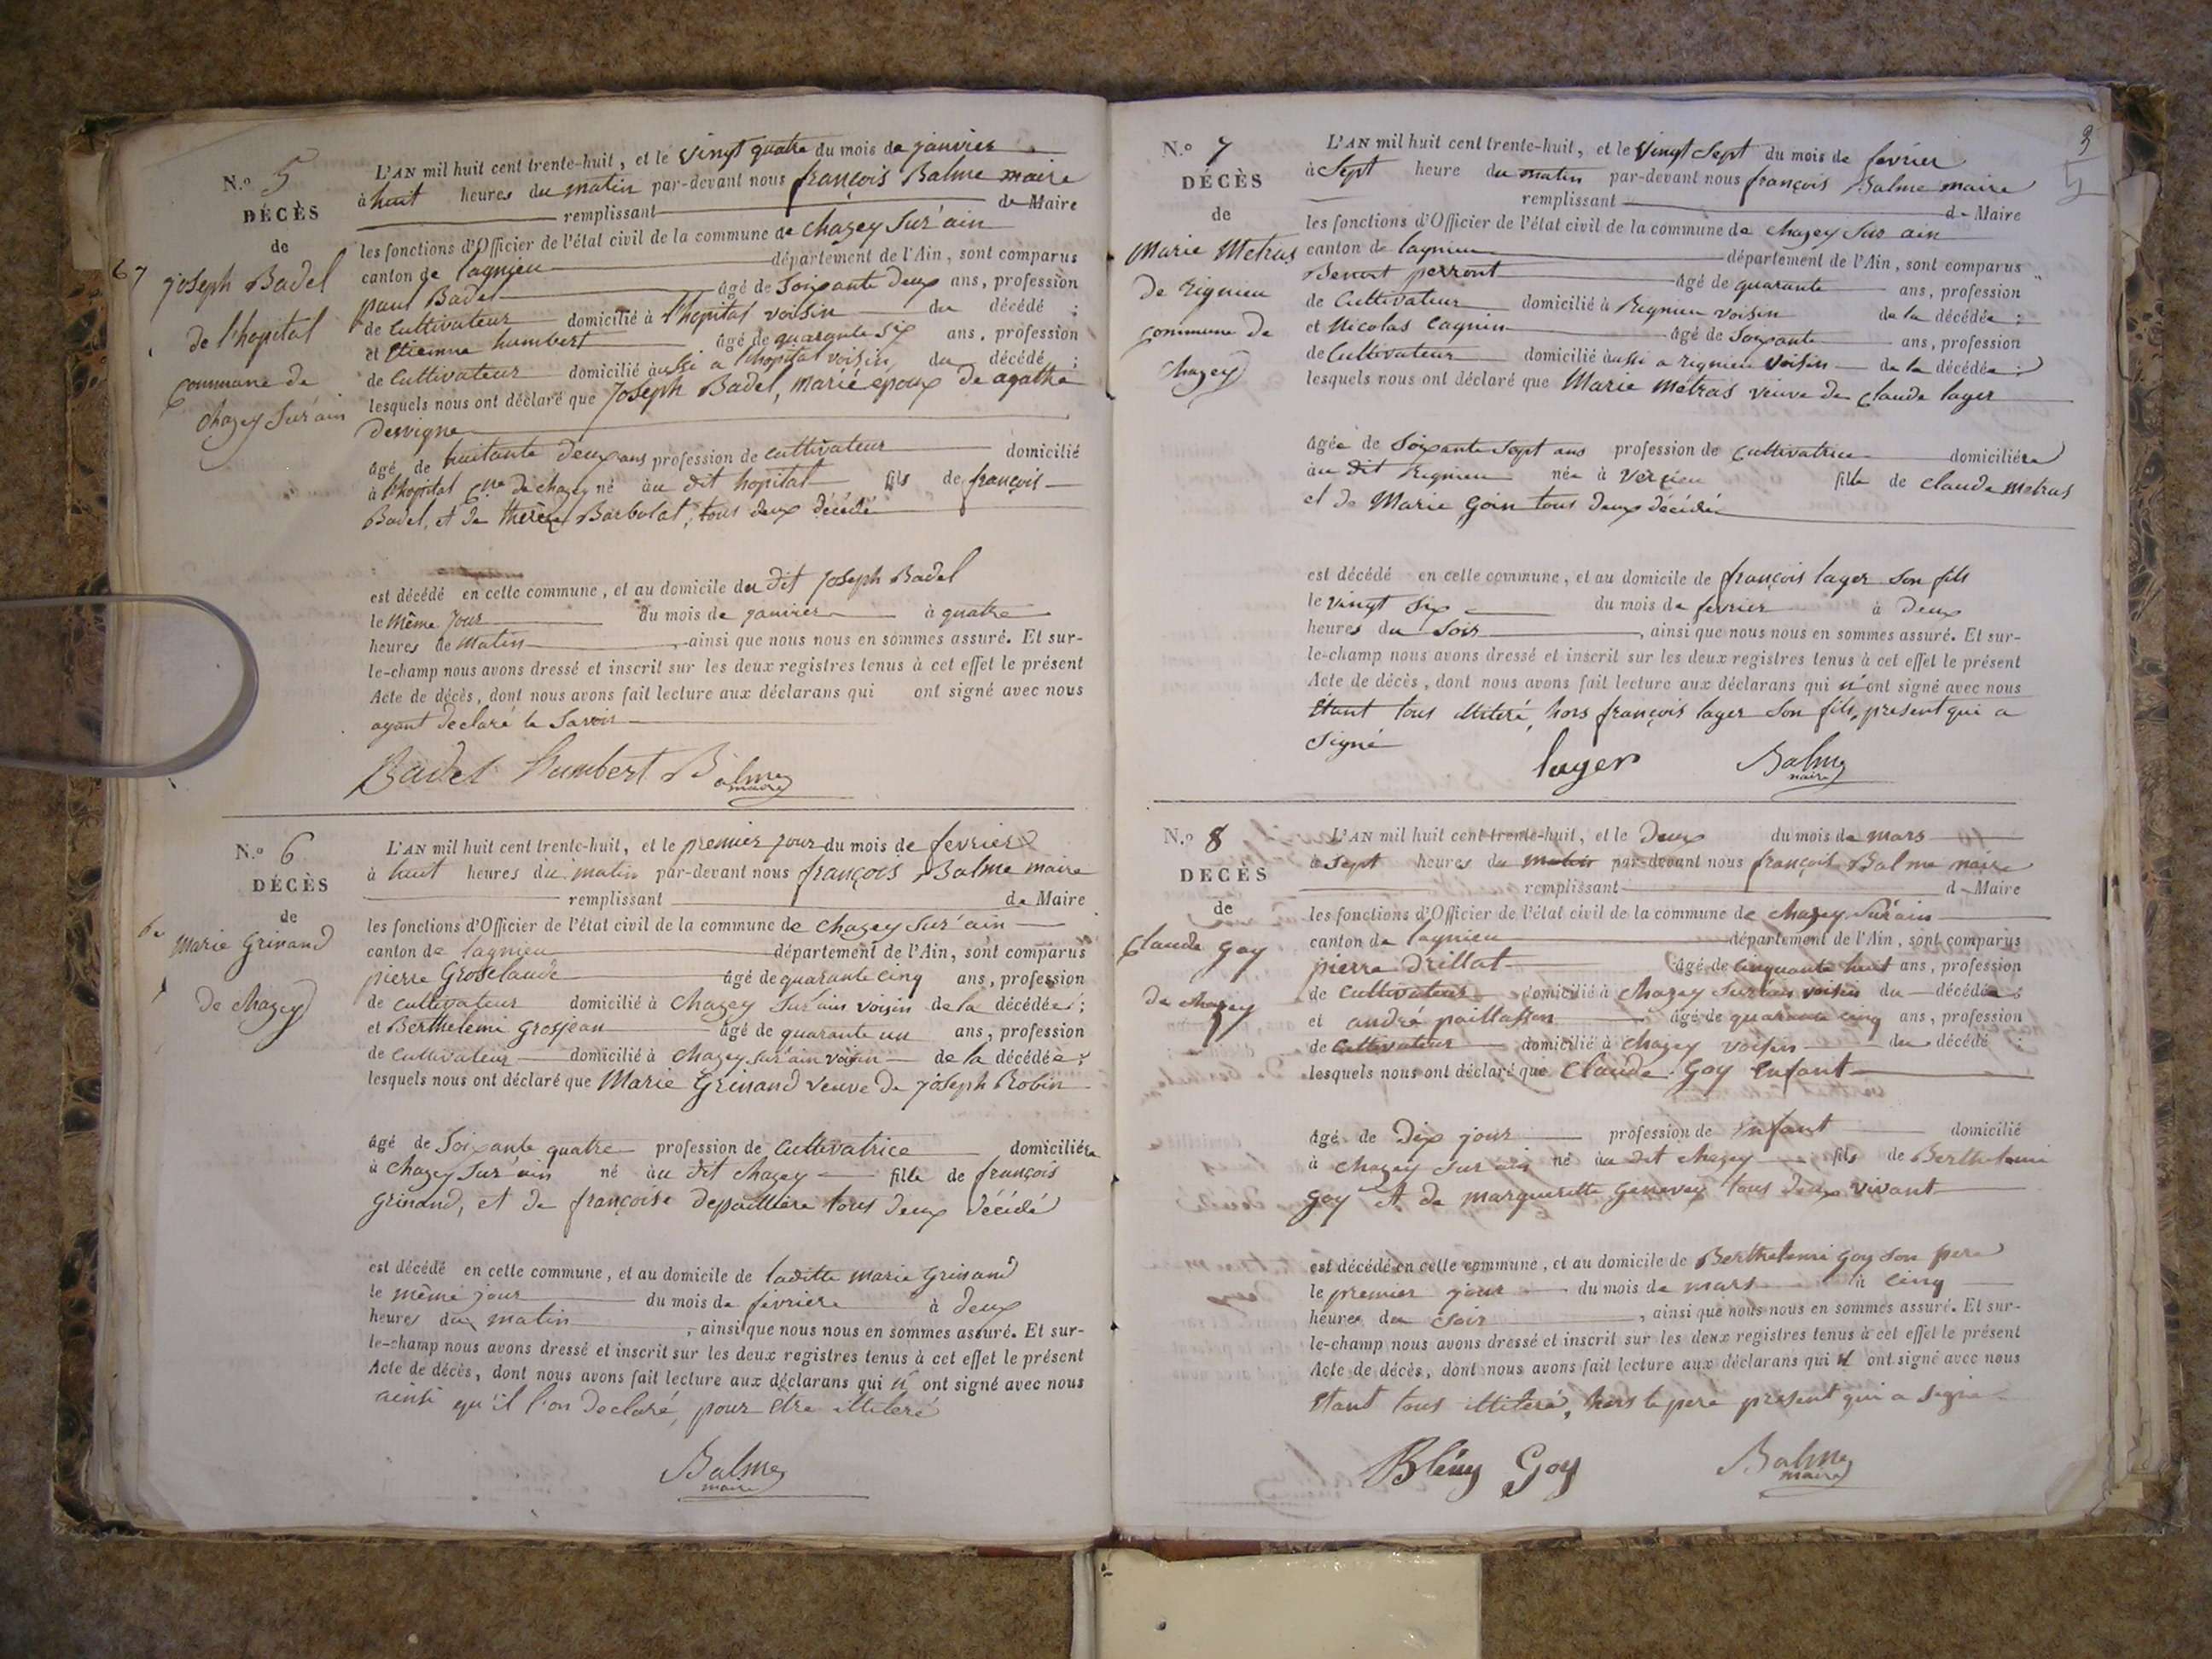 N.° 5
DÉCÈS
de
joseph Badel
de l'hopital
Commune de
chazey Sur ain
67
L'AN mil huit cent trente-huit, et le vingt quatre du mois de janvier
à huit heures du matin par-devant nous françois Balme maire
remplissant de Maire
les fonctions d'Officier de l'état civil de la commune de chazey Sur'ain
canton de lagnieu département de l'Ain, sont comparus
paul Badel âgé de Soixante deux ans, profession
de Cultivateur domicilié à l'hopital voisin du décédé ;
et Etienne humbert âgé de quarante six ans, profession
de Cultivateur domicilié aussi a l'hopital voisin, du décédé ;
lesquels nous ont déclaré que Joseph Badel, marié epoux de agathe
Dervigne
âgé de huitante deux ans profession de cultivateur domicilié
à l'hopital Cne de chazey né au dit hopital fils de françois
Badel, et de therèze Barbolat, tous deux décédé
est décédé en cette commune, et au domicile du dit Joseph Badel
le même jour du mois de janvier à quatre
heures de matin ainsi que nous nous en sommes assuré. Et sur-
le-champ nous avons dressé et inscrit sur les deux registres tenus à cet effet le présent
Acte de décès, dont nous avons fait lecture aux déclarans qui ont signé avec nous
ayant declaré le Savoir
Badel humbert Balme
maire
N.° 6
DÉCÈS
de
Marie Grinand
de chazey
L'AN mil huit cent trente-huit, et le premier jour du mois de fevrier
à huit heures du matin par-devant nous françois Balme maire
remplissant de Maire
les fonctions d'Officier de l'état civil de la commune de chazey Sur'ain
canton de lagnieu département de l'Ain, sont comparus
pierre Groselaude âgé de quarante cinq ans, profession
de cultivateur domicilié à chazey Sur ain voisin de la décédée ;
et Berthelemi Grosjean âgé de quarante un ans, profession
de Cultivateur domicilié à chazey sur'ain voisin de la décédée ;
lesquels nous ont déclaré que Marie Grinand veuve de joseph Robin
âgé de Soixante quatre profession de Cultivatrice domiciliée
à chazey Sur'ain né au dit chazey fille de françois
Grinand, et de françoise depailliere tous deux décédé
est décédé en cette commune, et au domicile de laditte marie Grinand
le même jour du mois de fevriere à deux
heures du matin, ainsi que nous nous en sommes assuré. Et sur-
le-champ nous avons dressé et inscrit sur les deux registres tenus à cet effet le présent
Acte de décès, dont nous avons fait lecture aux déclarans qui n' ont signé avec nous
ainsi qu'il l'on declaré, pour etre illiteré
Balme
maire
3
N.° 7
DÉCÈS
de
Marie Metras
de Rignieu
Commune de
chazey
L'AN mil huit cent trente-huit, et le vingt Sept du mois de fevrier
à Sept heure du matin par-devant nous françois Balme maire
remplissant de Maire
les fonctions d'Officier de l'état civil de la commune de chazey Sur ain
canton de lagnieu département de l'Ain, sont comparus
Benoit perront âgé de quarante ans, profession
de Cultivateur domicilié à Rignieu voisin de la décédée ;
et Nicolas Cagnin âgé de Soixante ans, profession
de Cultivateur domicilié aussi a rignieu voisin de la décédée ;
lesquels nous ont déclaré que Marie Metras veuve de Claude layer
âgée de Soixante Sept ans profession de Cultivatrice domiciliée
au dit Rignieu née à Vercieu fille de Claude Metras
et de Marie Goin tous deux décédé
est décédé en cette commune, et au domicile de françois layer Son fils
le vingt Six du mois de fevrier à deux
heures du Soir, ainsi que nous nous en sommes assuré. Et sur-
le-champ nous avons dressé et inscrit sur les deux registres tenus à cet effet le présent
Acte de décès, dont nous avons fait lecture aux déclarans qui n'ont signé avec nous
Etant tous illiteré, hors françois layer Son fils, present qui a
Signé
layer Balme
maire
N.° 8
DÉCÈS
de
Claude Goy
de chazey
L'AN mil huit cent trente-huit, et le Deux du mois de mars
à Sept heures du matin par-devant nous françois Balme maire
remplissant de Maire
les fonctions d'Officier de l'état civil de la commune de chazey Sur'ain
canton de lagnieu département de l'Ain, sont comparus
pierre Drillat âgé de Cinquante huit ans, profession
de Cultivateur domicilié à chazey Sur'ain voisin du décédé ;
et andré paillasson âgé de quarante cinq ans, profession
de Cultivateur domicilié à chazey voisin du décédé ;
lesquels nous ont déclaré que Claude Goy Enfant
âgé de Dix jour profession de infant domicilié
à chazey Sur ain né au dit chazey fils de Berthelemi
Goy et de marguerite Genevey tous deux vivant
est décédé en cette commune, et au domicile de Berthelemi Goy Son pere
le premier jour du mois de mars à cinq
heures du Soir, ainsi que nous nous en sommes assuré. Et sur-
le-champ nous avons dressé et inscrit sur les deux registres tenus à cet effet le présent
Acte de décès, dont nous avons fait lecture aux déclarans qui n' ont signé avec nous
Etant tous illiteré, hors le pere present qui a signé
Bléuy Goy Balme
maire